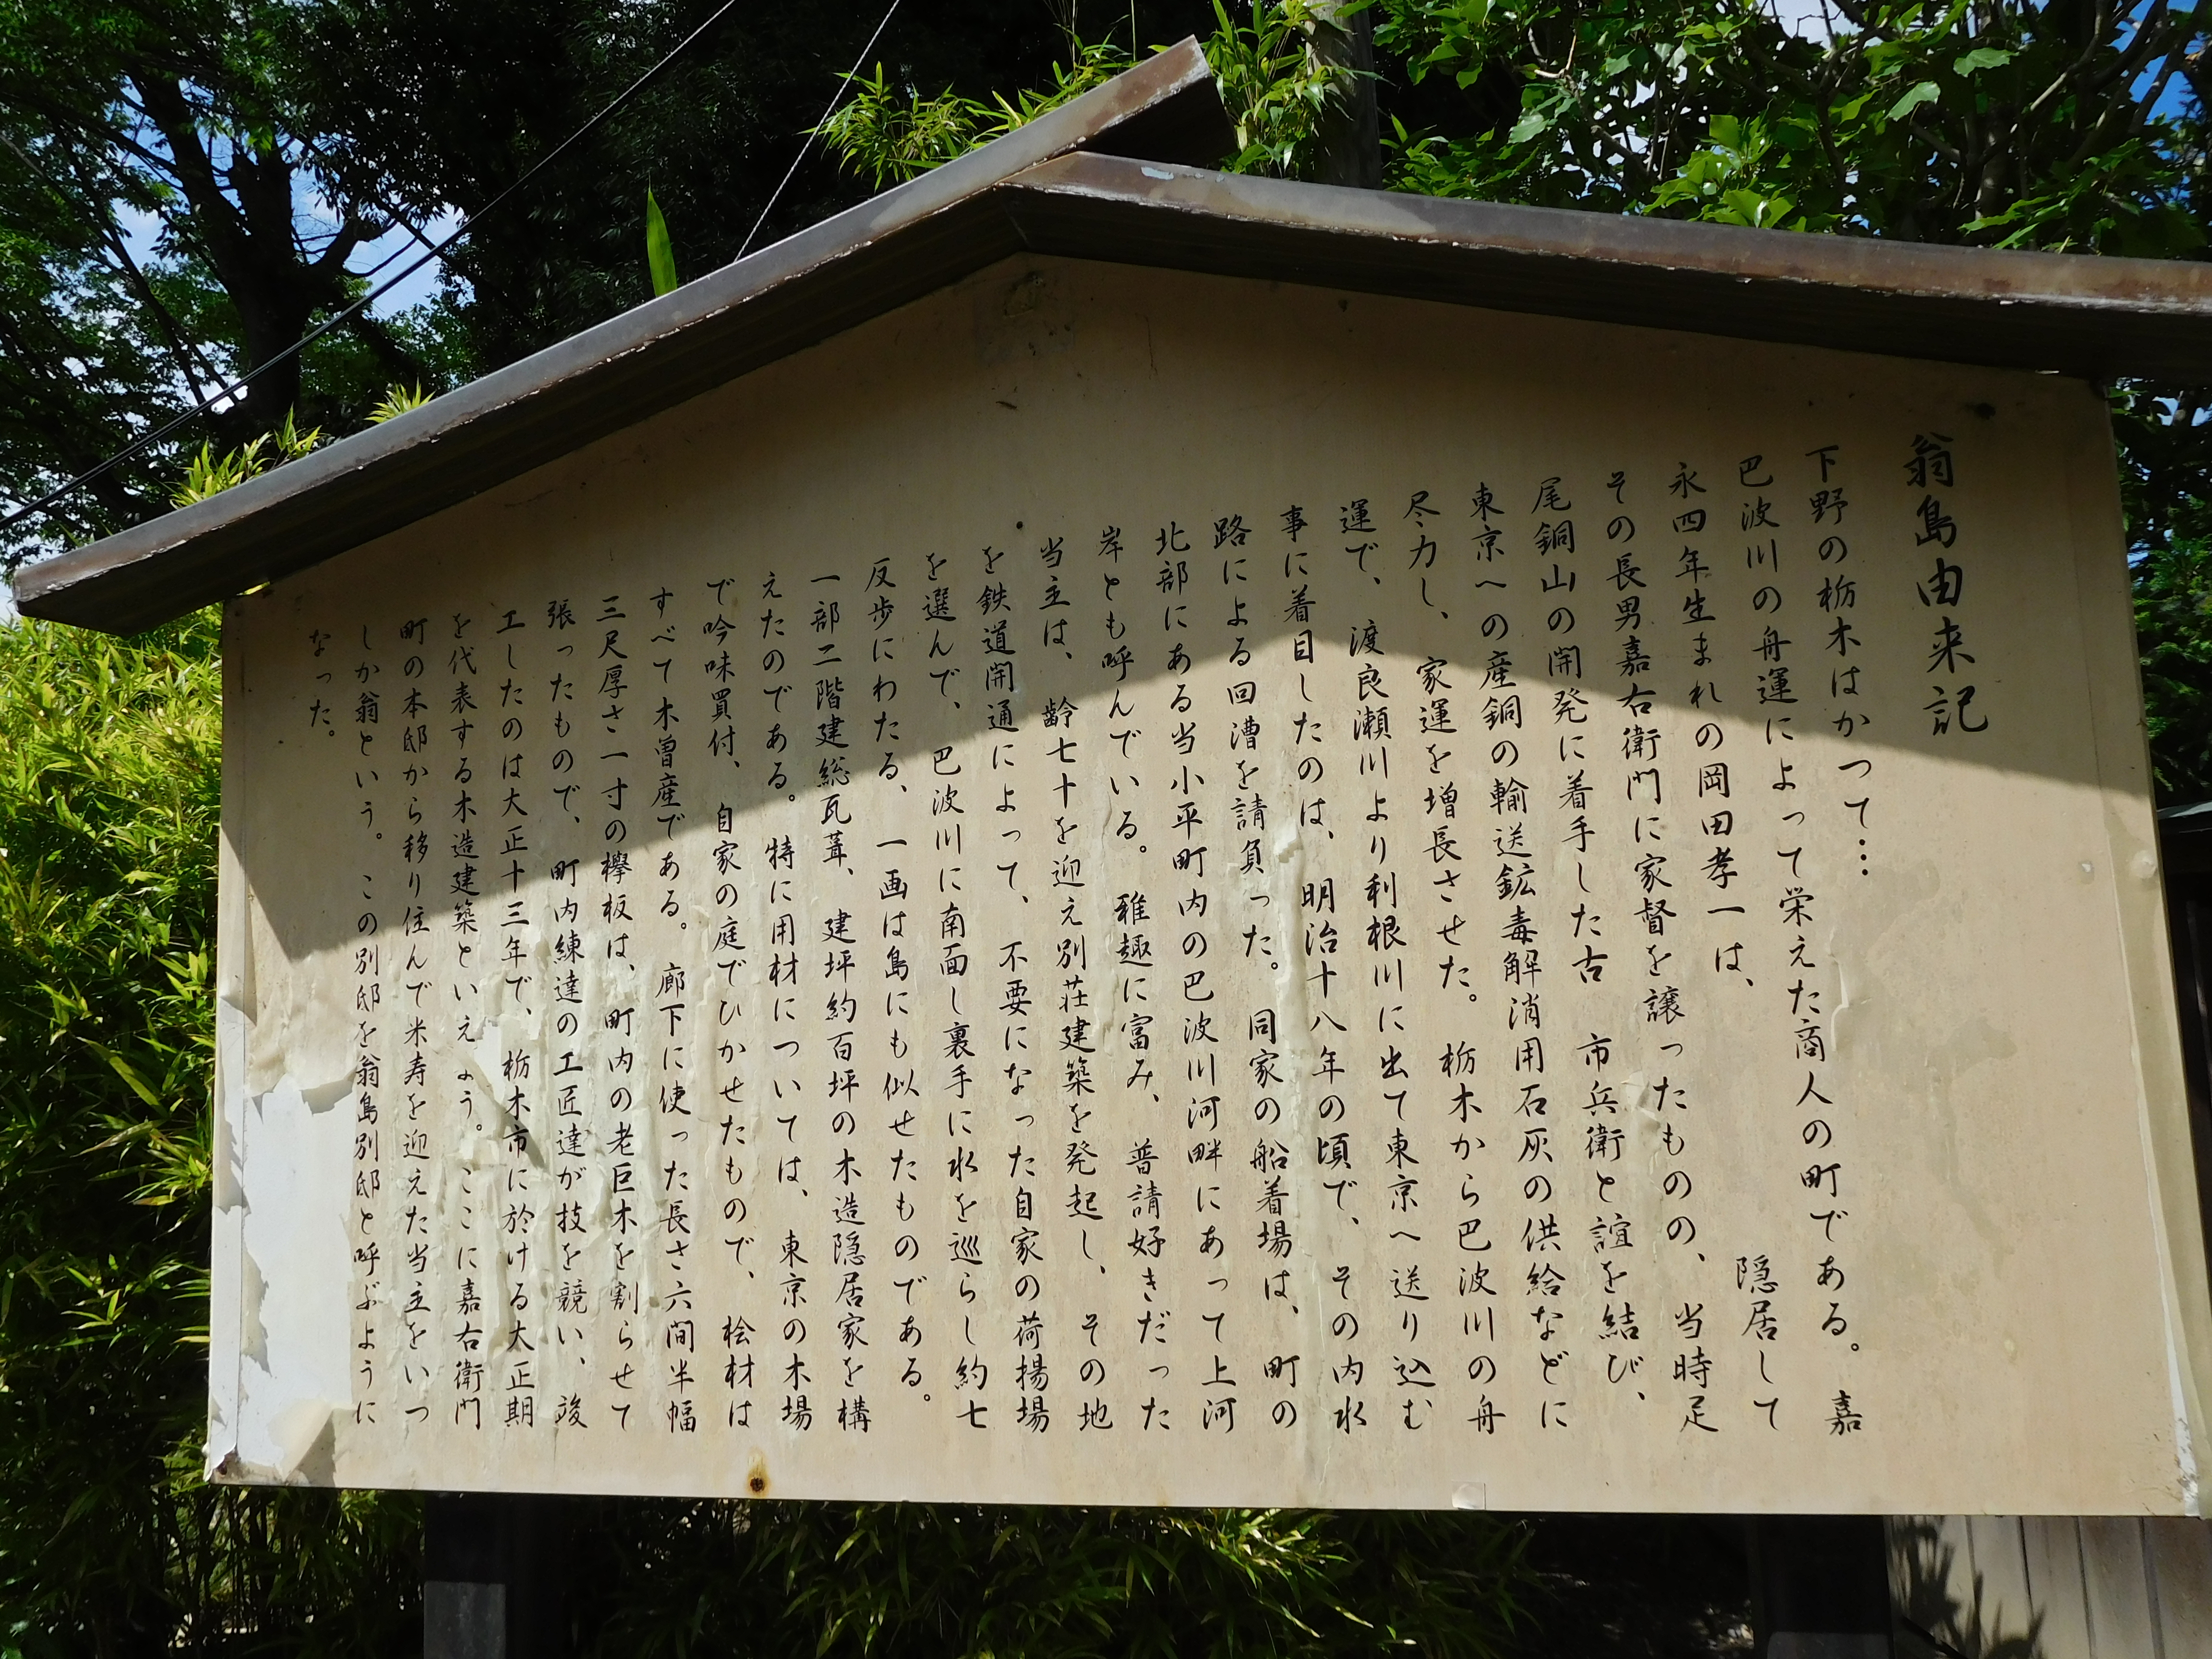 翁島由来記
下野の栃木はかつて…
巴波川の舟運によって栄えた商人の町である。 嘉
永四年生まれの岡田孝一は、 隠居して
その長男嘉右衛門に家督を譲ったものの、当時足
尾銅山の開発に着手した古 市兵衛と誼を結び、
東京への産銅の輸送鉱毒解消用石灰の供給などに
尽力し、家運を増長させた。栃木から巴波川の舟
運で、渡良瀬川より利根川に出て東京へ送り込む
事に着目したのは、明治十八年の頃で、その内水
路による回漕を請負った。同家の船着場は、町の
北部にある当小平町内の巴波川河畔にあって上河
岸とも呼んでいる。雅趣に富み、普請好きだった
当主は、齢七十を迎え別荘建築を発起し、その地
を鉄道開通によって、不要になった自家の荷揚場
を選んで、巴波川に南面し裏手に水を巡らし約七
反歩にわたる、一画は島にも似せたものである。
一部二階建総瓦葺、建坪約百坪の木造隠居家を構
えたのである。特に用材については、東京の木場
で吟味買付、自家の庭でひかせたもので、桧材は
すべて木曽産である。廊下に使った長さ六間半幅
三尺厚さ一寸の欅板は、町内の老巨木を割らせて
張ったもので、町内練達の工匠達が技を競い、竣
工したのは大正十三年で、栃木市に於ける大正期
を代表する木造建築といえよう。ここに嘉右衛門
町の本邸から移り住んで米寿を迎えた当主をいつ
しか翁という。この別邸を翁島別邸と呼ぶように
なった。